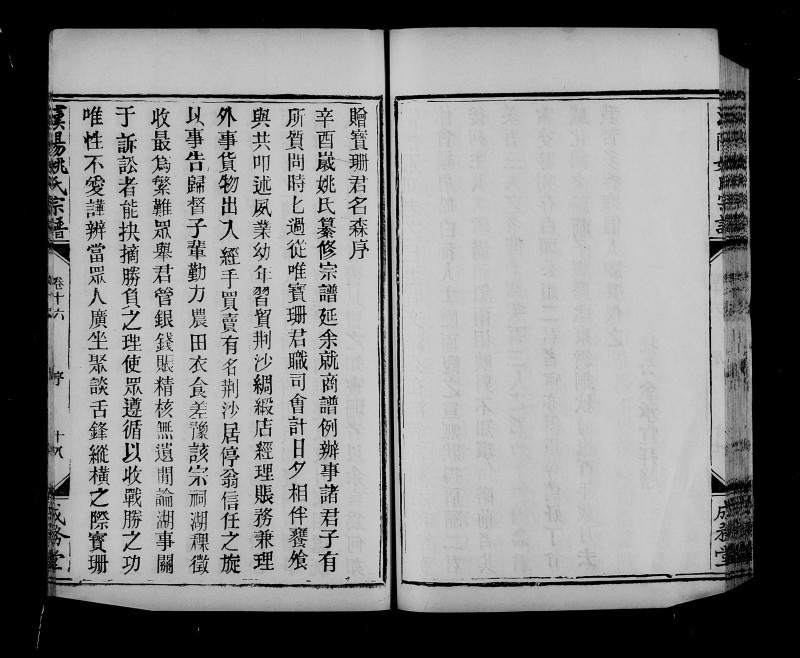 贈寶珊君名森序
辛酉歲姚氏纂修宗譜延余就商譜例辦事諸君子有
所質問時匕過從唯寶珊君職司會計日夕相伴饔飧
與共叩述夙業幼年習貿荆沙綢緞店經理賬務兼理
外事貨物出入經手買賣有名荆沙居停翁信任之旋
以事告歸督子輩勤力農田衣食差豫該宗祠湖稞徵
收最為繁難眾舉君管銀錢賬精核無遺閒論湖事關
于訴訟者能抉摘勝負之理使眾遵循以收戰勝之功
唯性不愛譁辨當眾人廣坐聚談舌鋒縱橫之際寶珊
漢陽姚氏宗譜
卷十六
序
十八
成務堂